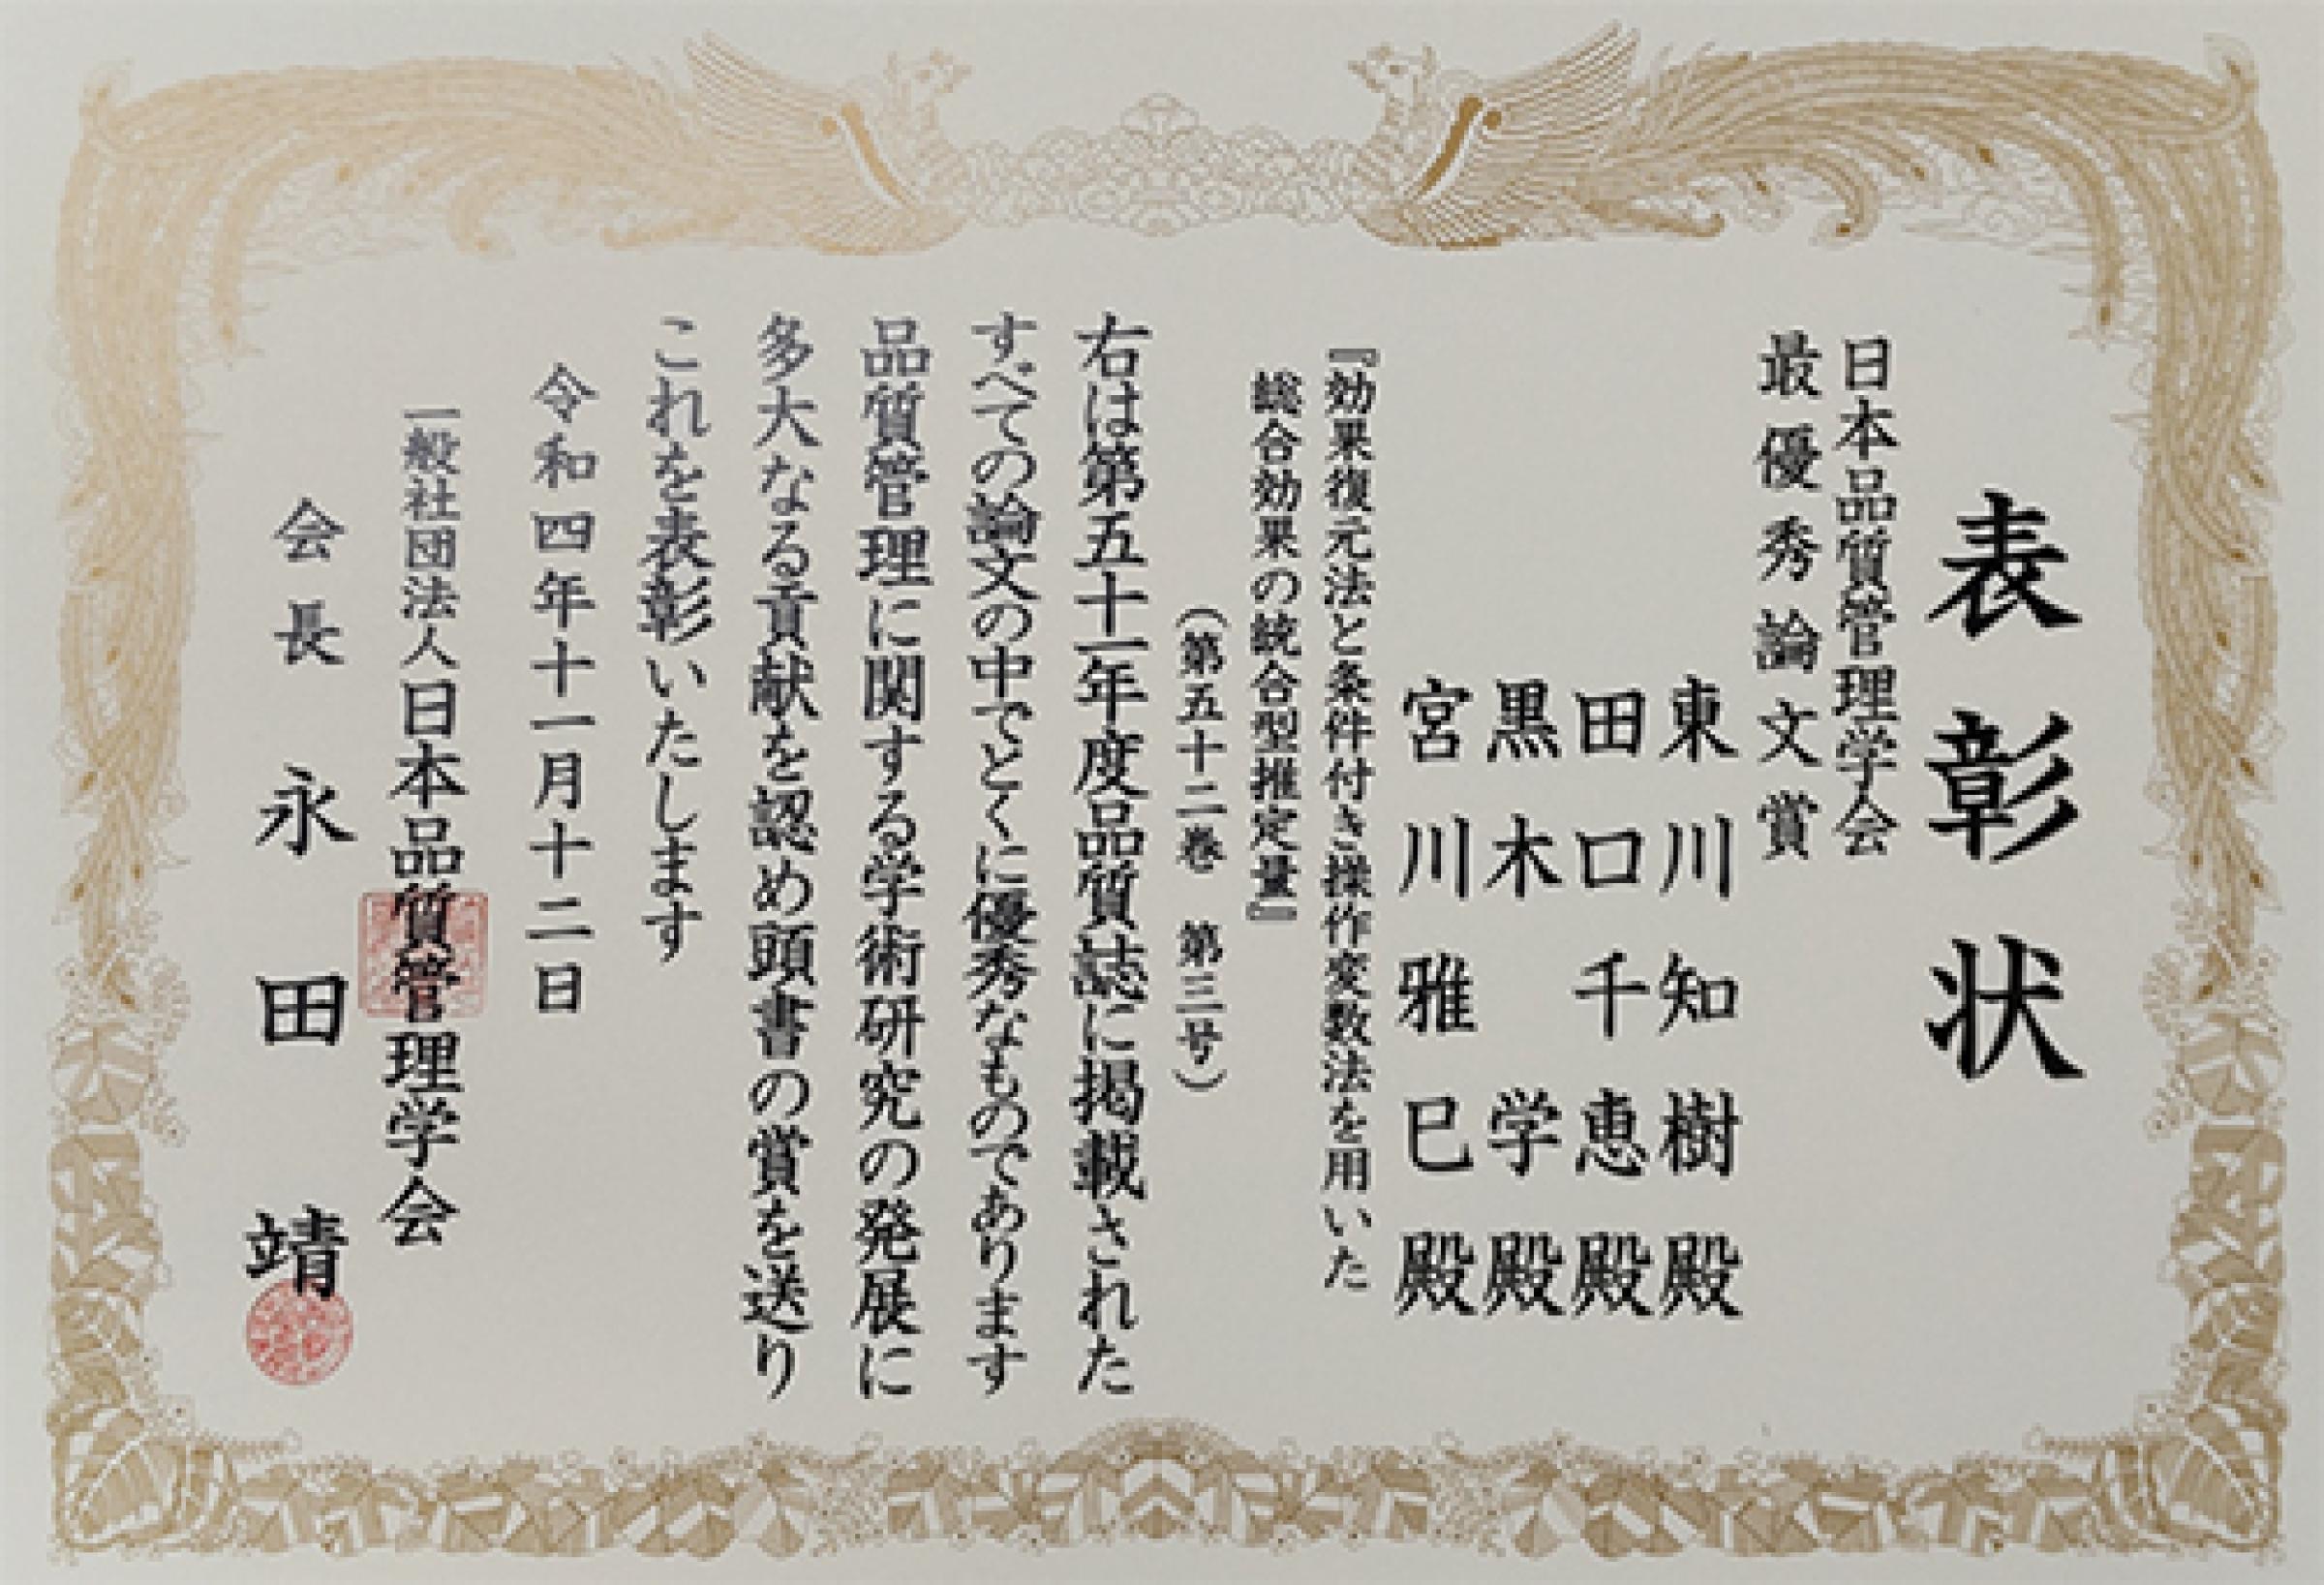 表彰状
日本品質管理学会
最優秀論文賞
東川知樹殿
田口千恵殿
黒木学殿
宮川雅巳殿
『効果復元法と条件付き操作変数法を用いた
総合効果の統合型推定量』
（第五十二巻　第三号）
右は第五十一年度品質誌に掲載された
すべての論文の中でとくに優秀なものであります
品質管理に関する学術研究の発展に
多大なる貢献を認め頭書の賞を送り
これを表彰いたします
令和四年十一月十二日
一般社団法人日本品質管理学会
会長　永田　靖